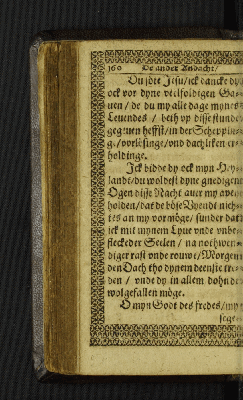 160 De ander Andacht/
Du söte Jesu/ ick dancke dy
ock vor dyne velfoldigen Ga-
uen / de du my alle dage mynes
Leuendes / beth vp disse stunde
gegeuen heffst/ in der Scheppin-
g/ vorlösinge/ vnd dachliken er-
holdinge.
Ick bidde dy ock myn Hey-
landt/ du woldest dyne gnedigen
Ogen disse Nacht auer my
holden/ dat de böse Vyendt nich-
tes an my vormöge/ sunder dat
ick mit mynem Lyue vnde vnbe-
fleckeder Seelen / na nochwen-
diger rast vnde rouwe/ Morgen
den Dach tho dynem deenste
den / vnde dy in allem dohnde
wolgefallen möge.
O myn Godt des fredes/ my
sege-